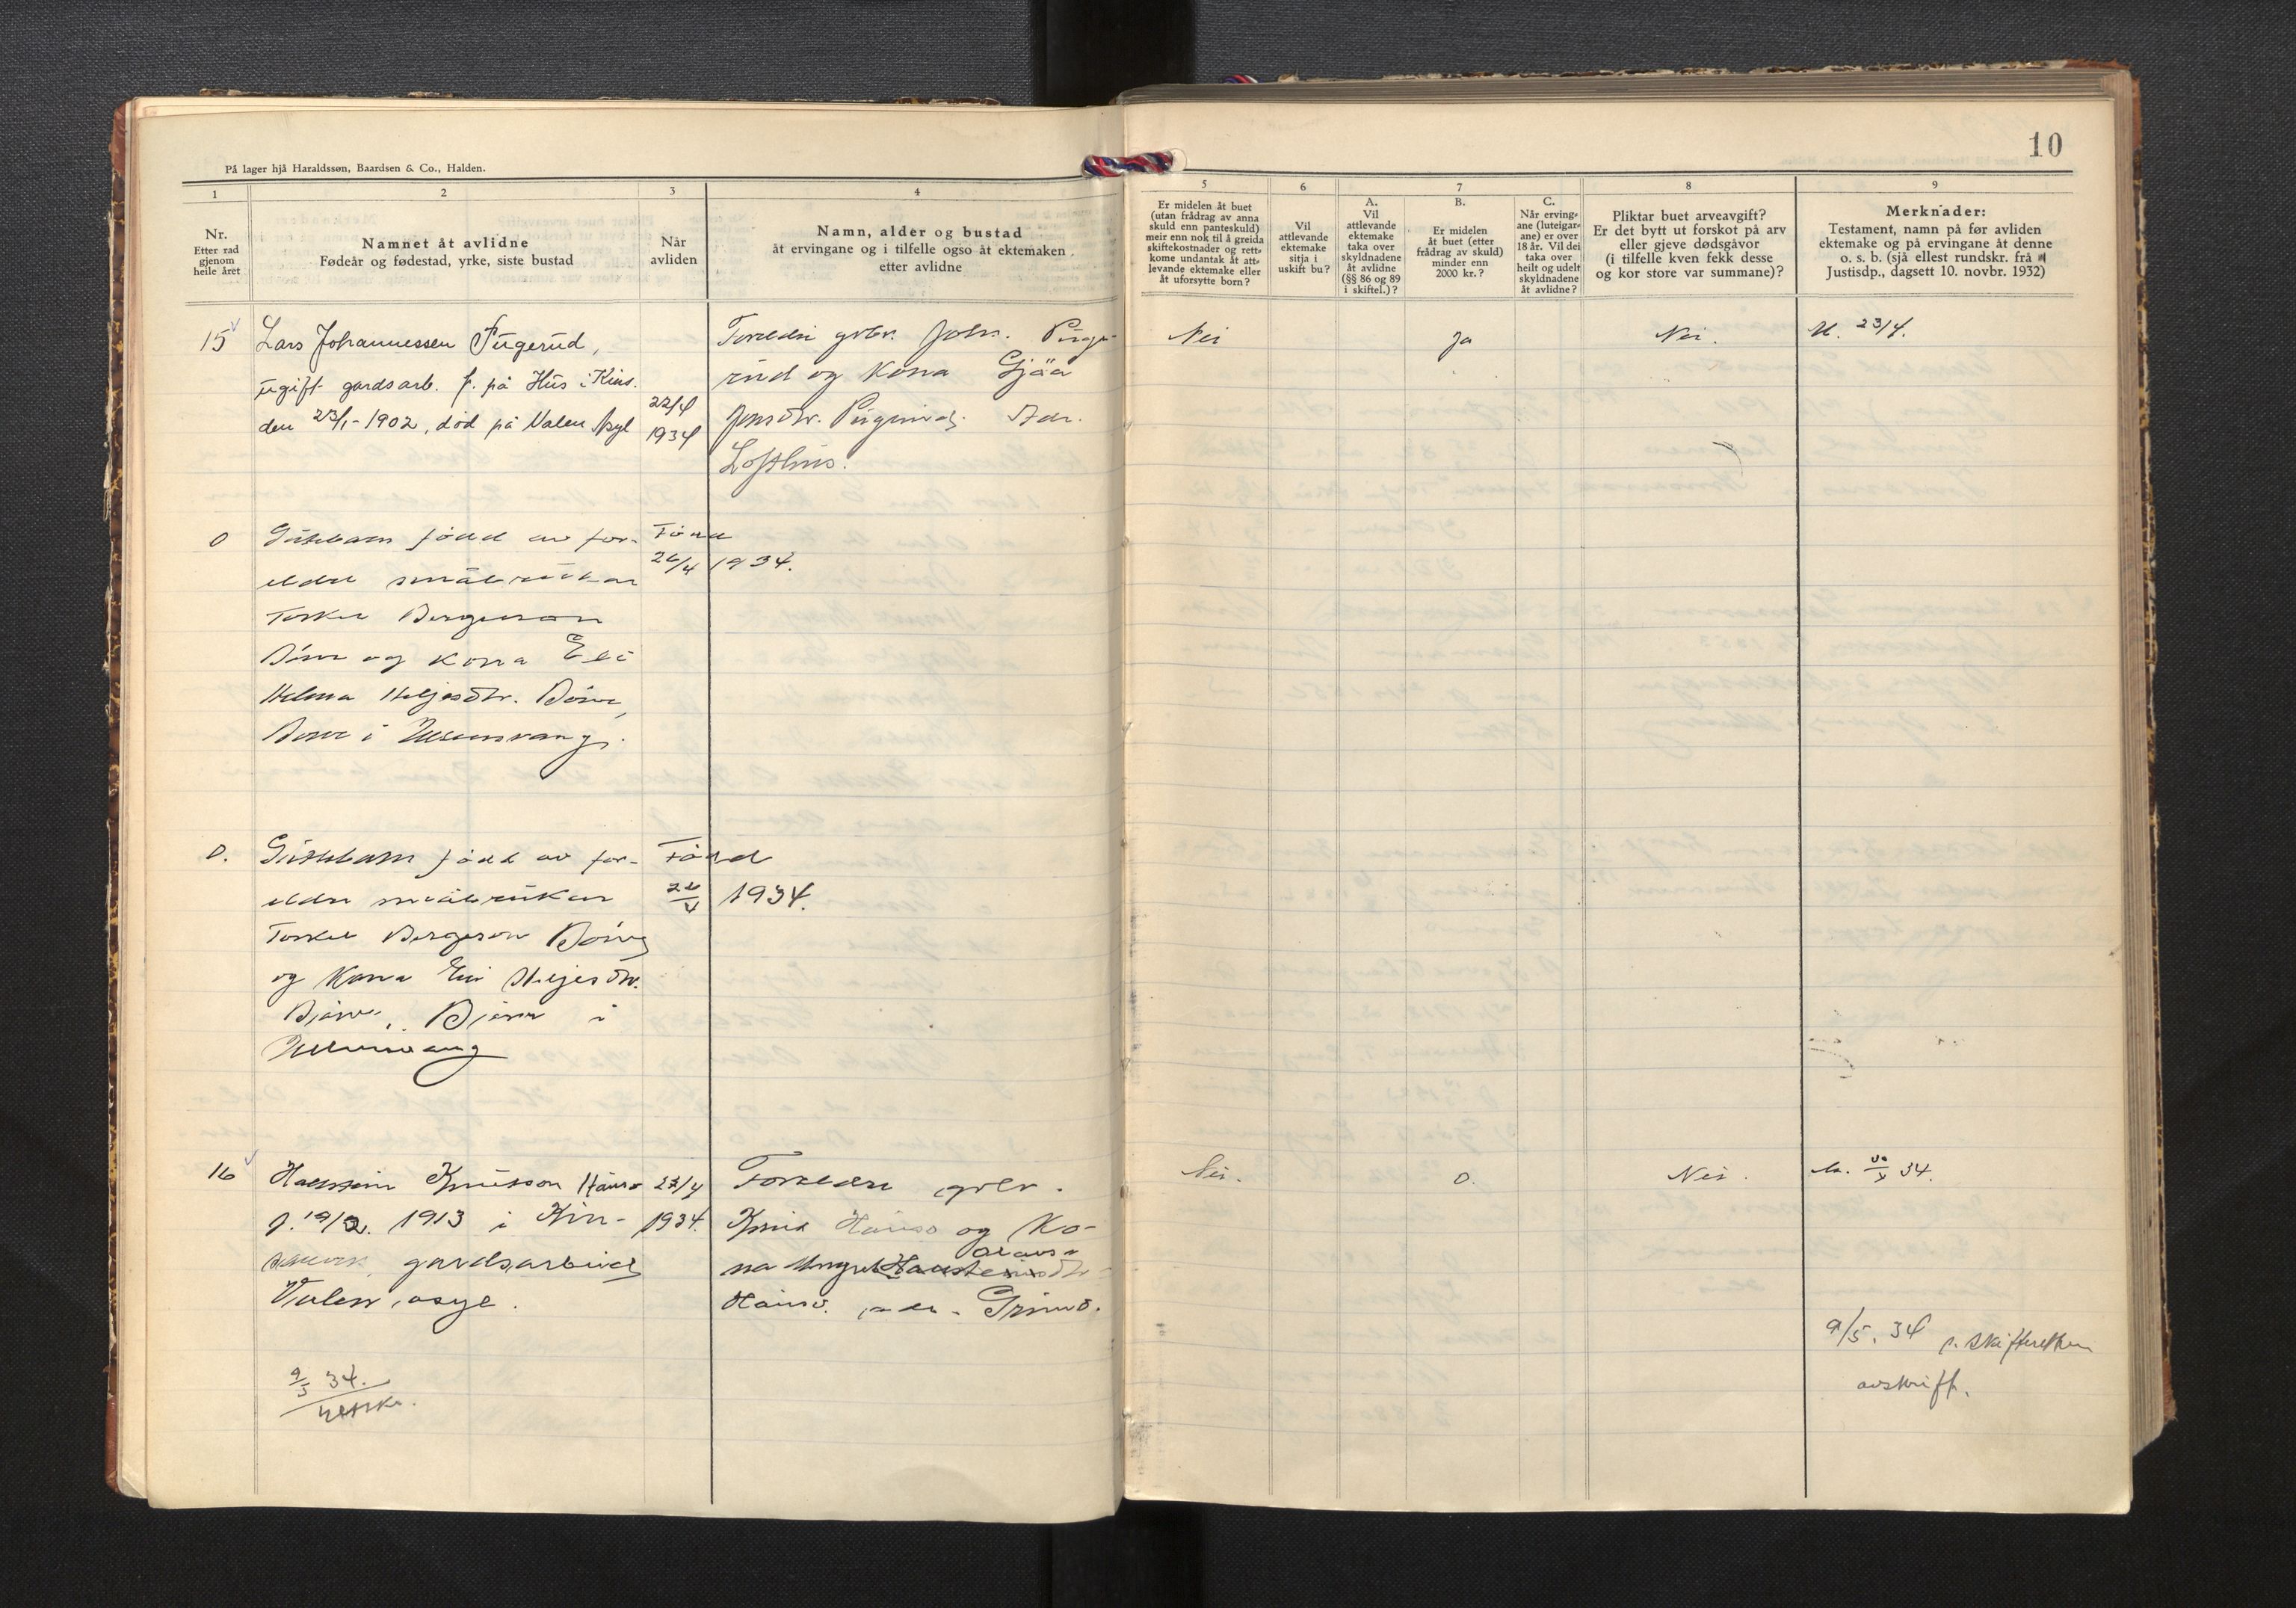 På lager hjå Haraldssøn, Baardsen & Co., Halden.
10
1 2 3 4 5 6 7 8 9
Nr.
Etter rad
gjenom
heile året
Namnet åt avlidne
Fødeår og fødestad, yrke, siste bustad
Når
avliden
Namn, alder og bustad
åt ervingane og i tilfelle ogso åt ektemaken
etter avlidne
Er midelen åt buet
(utan frådrag av anna
skuld enn panteskuld)
meir enn nok til å greida
skiftekostnader og rett-
kome undantak åt att-
levande ektemake eller
åt uforsytte born?
Vil
attlevande
ektemake
sitja i
uskift bu?
A.
Vil
attlevande
ektemake
taka over
skyldnadene
åt avlidne
(§§ 86 og 89
i skiftel.)?
B.
Er midelen
åt buet (etter
frådrag av skuld)
minder enn
2000 kr.?
C.
Når erving-
ane (luteigar-
ane) er over
18 år. Vil dei
taka over
heilt og udelt
skyldnadene
åt avlidne?
Pliktar buet arveavgift?
Er det bytt ut forskot på arv
eller gjeve dødsgåvor
(i tilfelle kven fekk desse
og kor store var summane)?
Merknader:
Testament, namn på før avliden
ektemake og på ervingane åt denne
o. s. b. (sjå ellest rundskr. frå
Justisdp., dagsett 10. novbr. 1932)
15 Lars Johannessen
ugift gardsarb. f. på Hus i Kins.
den 23/1-1902, død på Valen Asyl
22/4
1934
Foreldri grbr. Joh.
og kona Gjöa
Adr.
Lofthus.
Nei Ja Nei. M. 23/4.
0 fødd av for-
eldre småbrukar
Torkel Bergeson
og kona Eli
Helena Heljesdtr. Börve,
Börve i Ullensvang.
Fødd
26/4 1934.
0. fødd av for-
eldre småbrukar
Torkel Bergeson Börve
og kona Eli Heljesdtr.
i
Ullensvang
Fødd
26/4 1934.
16 Knutson Håuso
f. 19/2. 1913 i Kin-
sarvik, gardsarbeider
Valen, asyl.
1934.
Foreldre grbr.
Knut Håuso og ko-
na Olavs-
Håuso. adr. Grimo.
Nei. 0. Nei. 34.
9/5 34.
9/5. 34 skifteretten
avskrift.